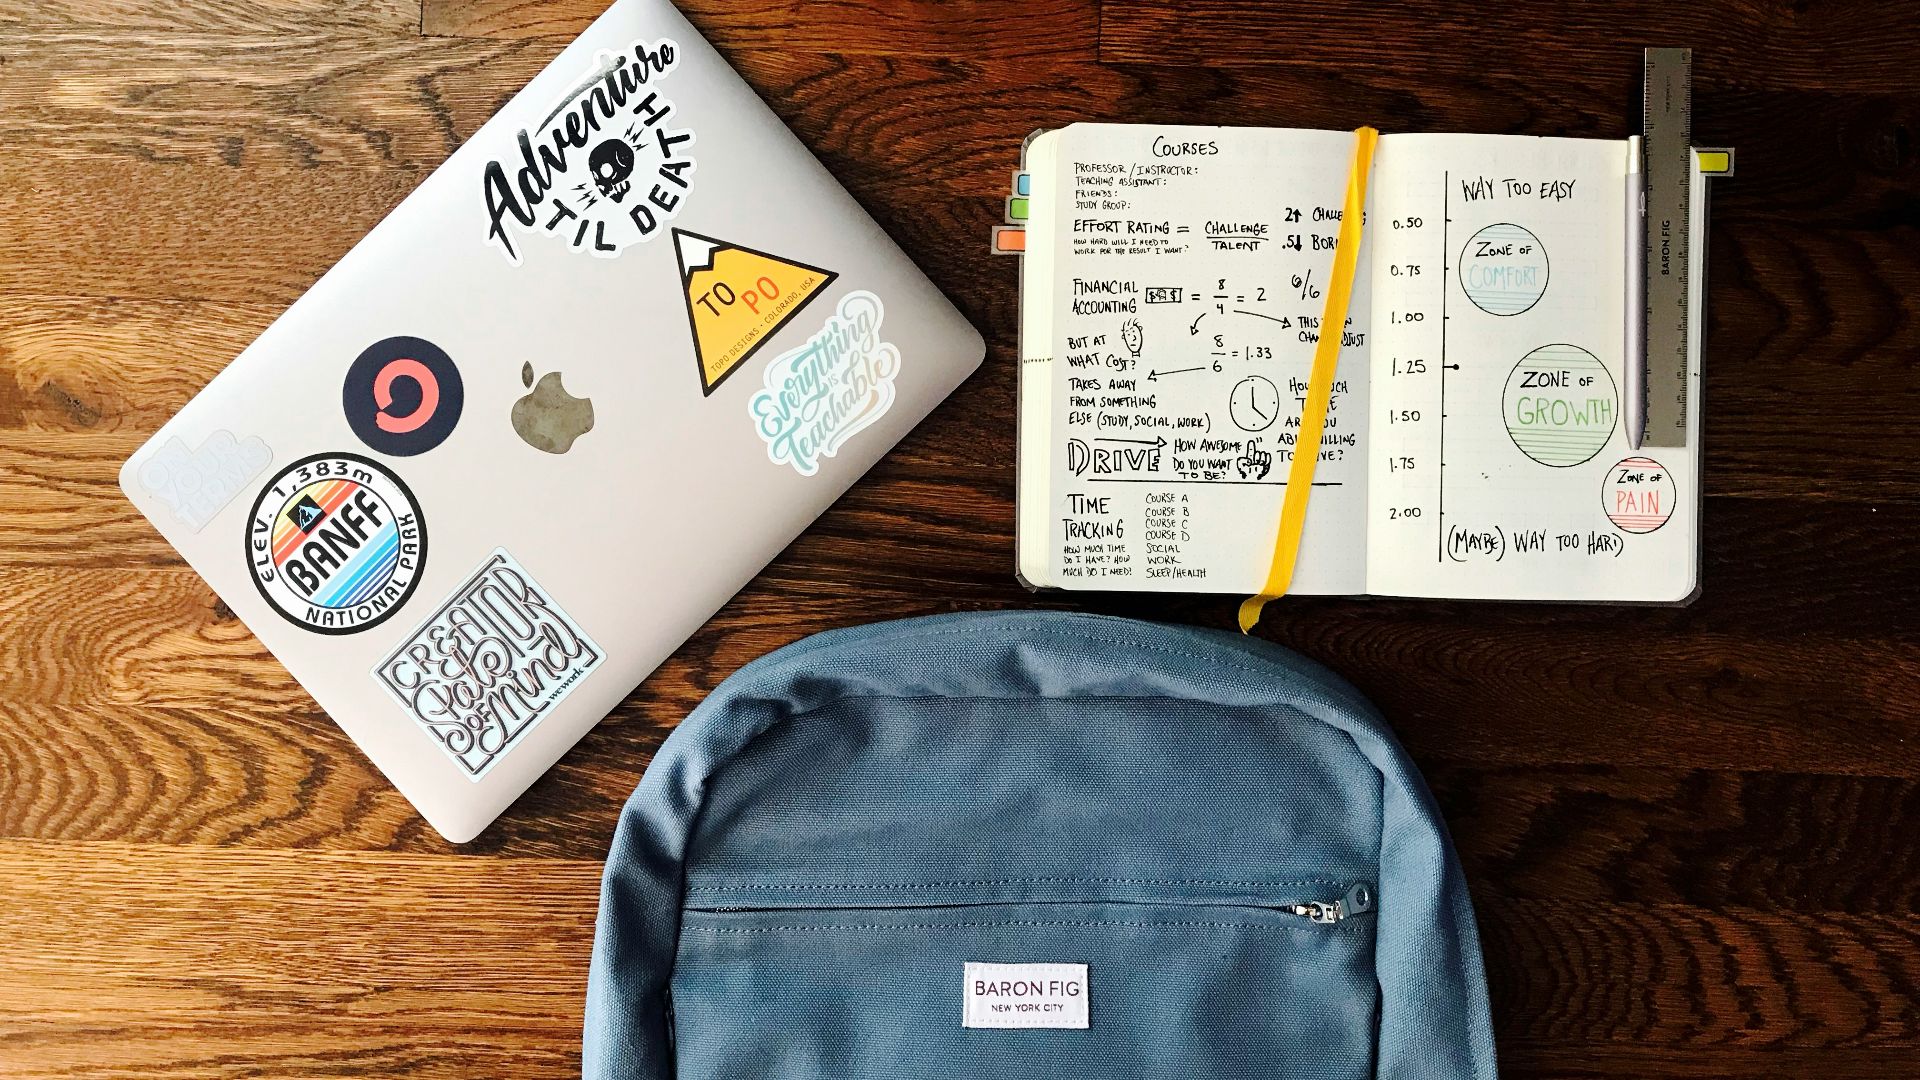 Adventure
TIL DEATH
TOPO
TOPO DESIGNS · COLORADO, USA
Everything
IS
Teachable
ON
YOUR
TERMS
ELEV. 1,383m
BANFF
NATIONAL PARK
CREATOR
State
OF
Mind
wework
COURSES
PROFESSOR / INSTRUCTOR:
TEACHING ASSISTANT:
FRIENDS:
STUDY GROUP:
EFFORT RATING = CHALLENGE
TALENT
HOW HARD WILL I NEED TO
WORK FOR THE RESULT I WANT?
2↑
.5↓
FINANCIAL
ACCOUNTING = 8/4 = 2
6/6
THIS
BUT AT
WHAT COST?
8/6 = 1.33
TAKES AWAY
FROM SOMETHING
ELSE (STUDY, SOCIAL, WORK)
DRIVE
HOW AWESOME
DO YOU WANT
TO BE?
TIME
TRACKING
HOW MUCH TIME
DO I HAVE? HOW
MUCH DO I NEED?
COURSE A
COURSE B
COURSE C
COURSE D
SOCIAL
WORK
SLEEP/HEALTH
WAY TOO EASY
0.50
0.75
1.00
1.25
1.50
1.75
2.00
ZONE OF
COMFORT
ZONE OF
GROWTH
ZONE OF
PAIN
(MAYBE) WAY TOO HARD
BARON FIG
BARON FIG
NEW YORK CITY